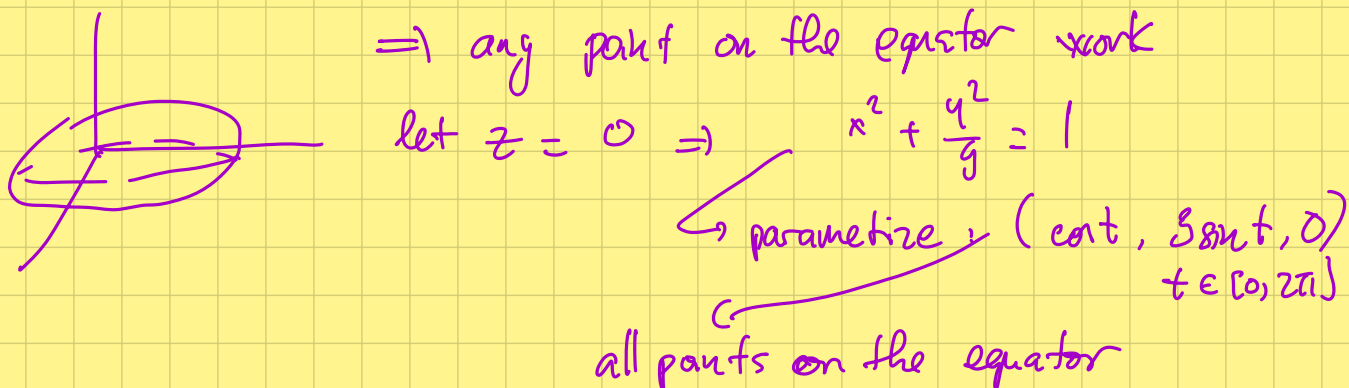 ⇒ any point on the equator work
let z = 0 ⇒ x² + y²/9 = 1
parametize : (cost, 3sint, 0)
t ∈ [0, 2π]
all points on the equator